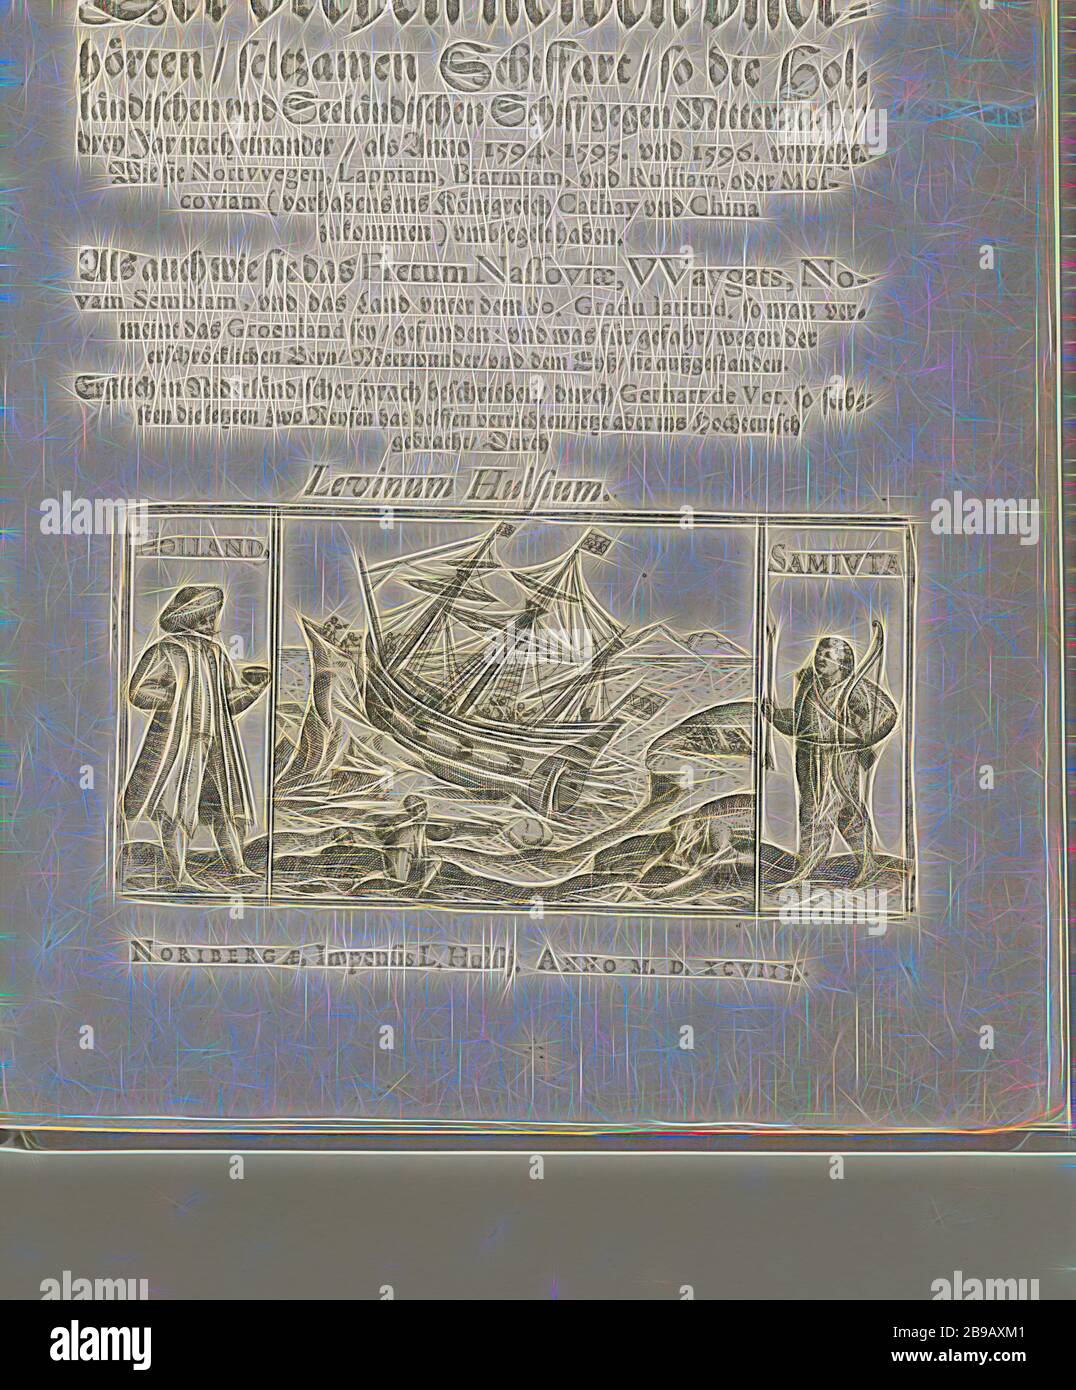 hörten / seltzamen Schiffart / so die Hol-
ländischen und Seeländischen Schiff gegen Mitternacht /
drey Jar nach einander / als Anno 1594. 1595. und 1596. verricht.
Wie sie Nortvvegen, Lappiam, Biarmiam, und Russiam, oder Mos-
coviam (vorhabens ins Königreich Cathay und China
zukommen) umbsegelt haben.
Als auch wie sie das Fretum Nassoviæ, Waygats, No-
vam Semblam, und das Land unter dem 80. Gradu latitud. so man ver-
meint das Groenland sey / gefunden: und was für gefahr / wegen der
erschröcklichen Bern / Meerwunder und dem Eyß / sie außgestanden.
Erstlich in Niderländischer sprach beschrieben / durch Gerhart de Ver, so selbs-
ten die letzten zwo Reysen hat helffen verrichten / jetzt aber ins Hochteutsch
gebracht / Durch
Levinum Hulsium.
HOLLAND.
SAMIUTA
NORIBERGÆ, Impensis L. Hulsij. ANNO M. D. XCVIII.
alamy
Image ID: 2B9AXM1
www.alamy.com